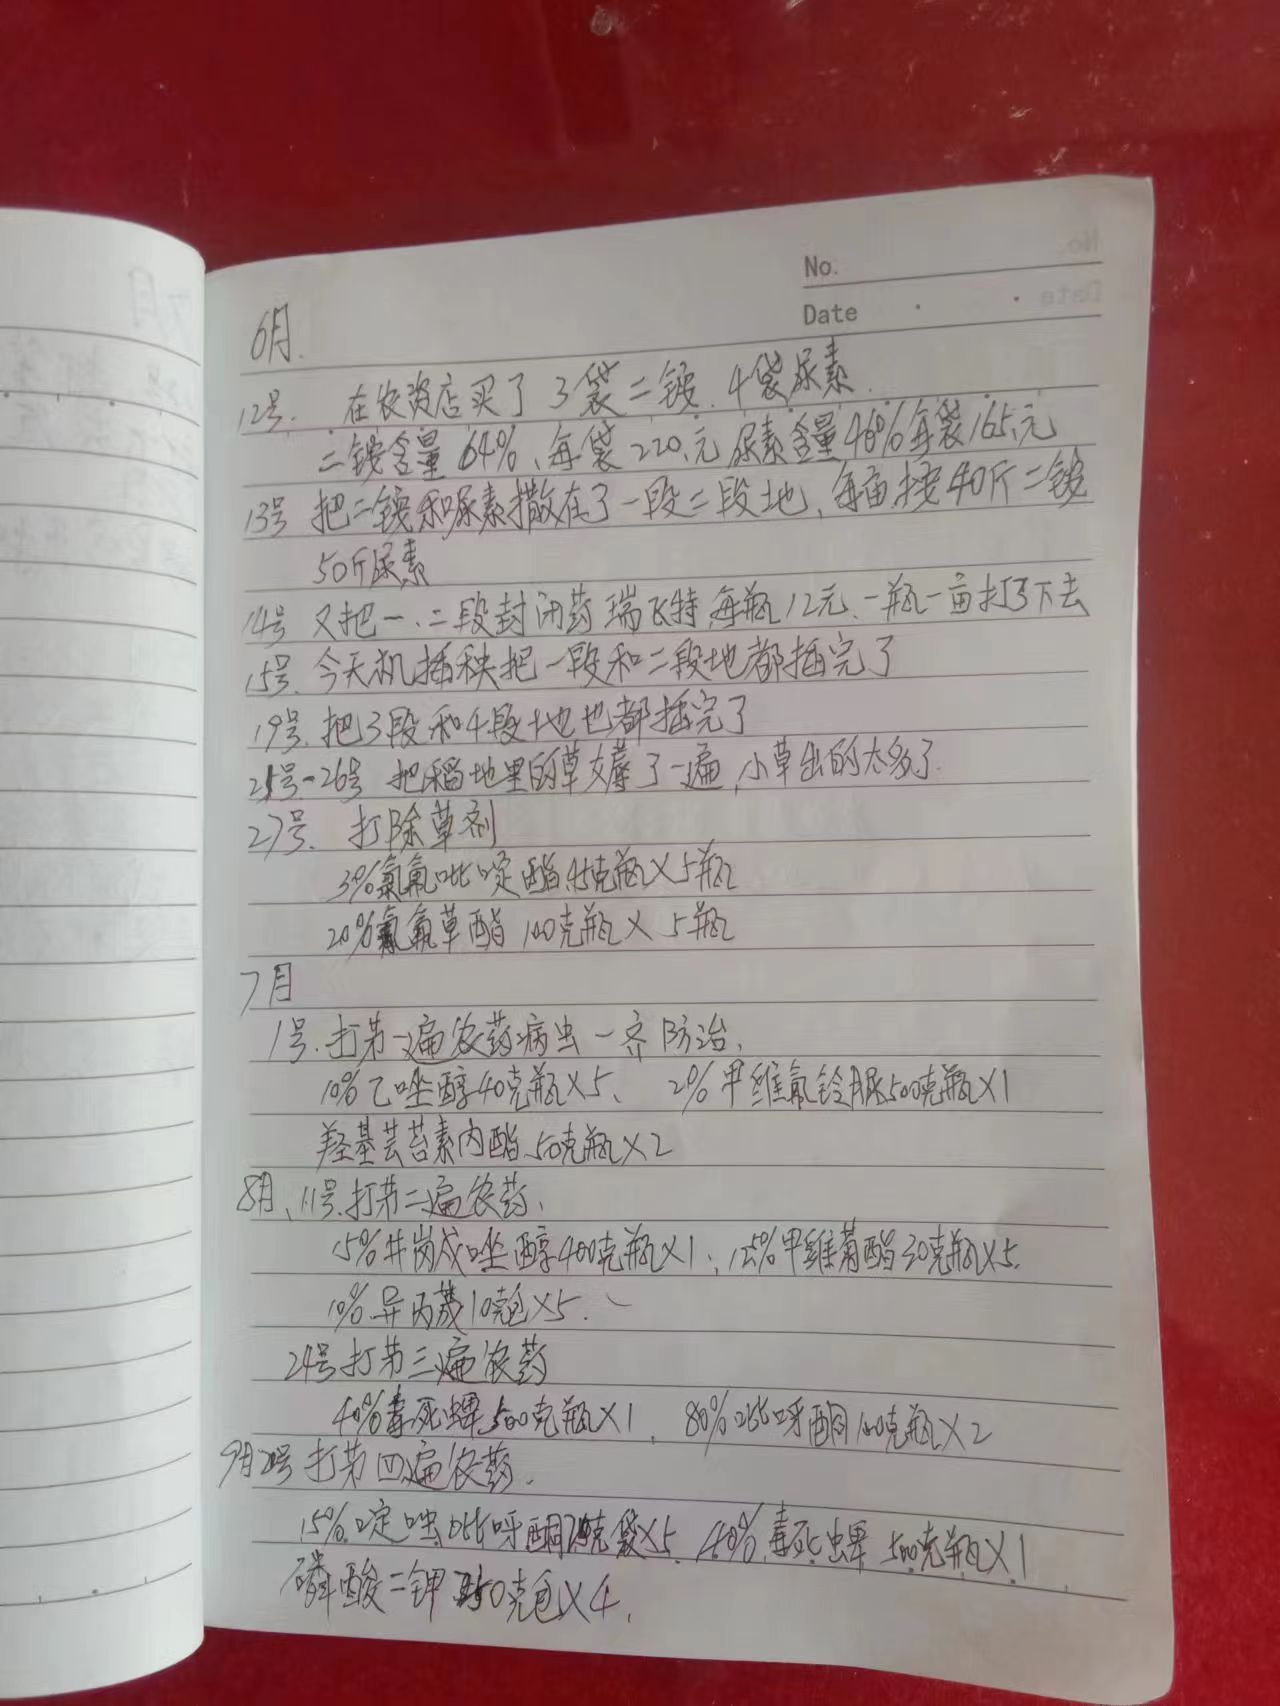 No.
Date
6月.
12号. 在农资店买了3袋二铵.4袋尿素.
二铵含量64%、每袋220.元 尿素含量46%每袋165.元
13号 把二铵和尿素撒在了一段二段地,每亩按40斤二铵
50斤尿素
14号 又把一.二段封闭药瑞飞特,每瓶12元.一瓶一亩打了下去
15号.今天机插秧把一段和二段地都插完了
19号.把3段和4段地也都插完了
25号-26号 把稻地里的草又薅了一遍,小草出的太多了.
27号. 打除草剂
3%氯氟吡啶酯.45克瓶×5瓶
20%氰氟草酯 100克瓶×5瓶
7月
1号.打第一遍农药病虫一齐防治,
10%己唑醇40克瓶×5、 2%甲维氟铃脲500克瓶×1
羟基芸苔素内酯.50克瓶×2
8月、11号.打第二遍农药,
15%井岗戊唑醇400克瓶×1, 甲维菊酯30克瓶×5.
10%异丙威10克包×5.
24号打第三遍农药
40%毒死蜱500克瓶×1, 80%吡呀酮100克瓶×2
9月 打第四遍农药.
15%啶虫.吡呀酮 克袋×5. 40%毒死蜱500克瓶×1
磷酸二钾 克包×4.
7月